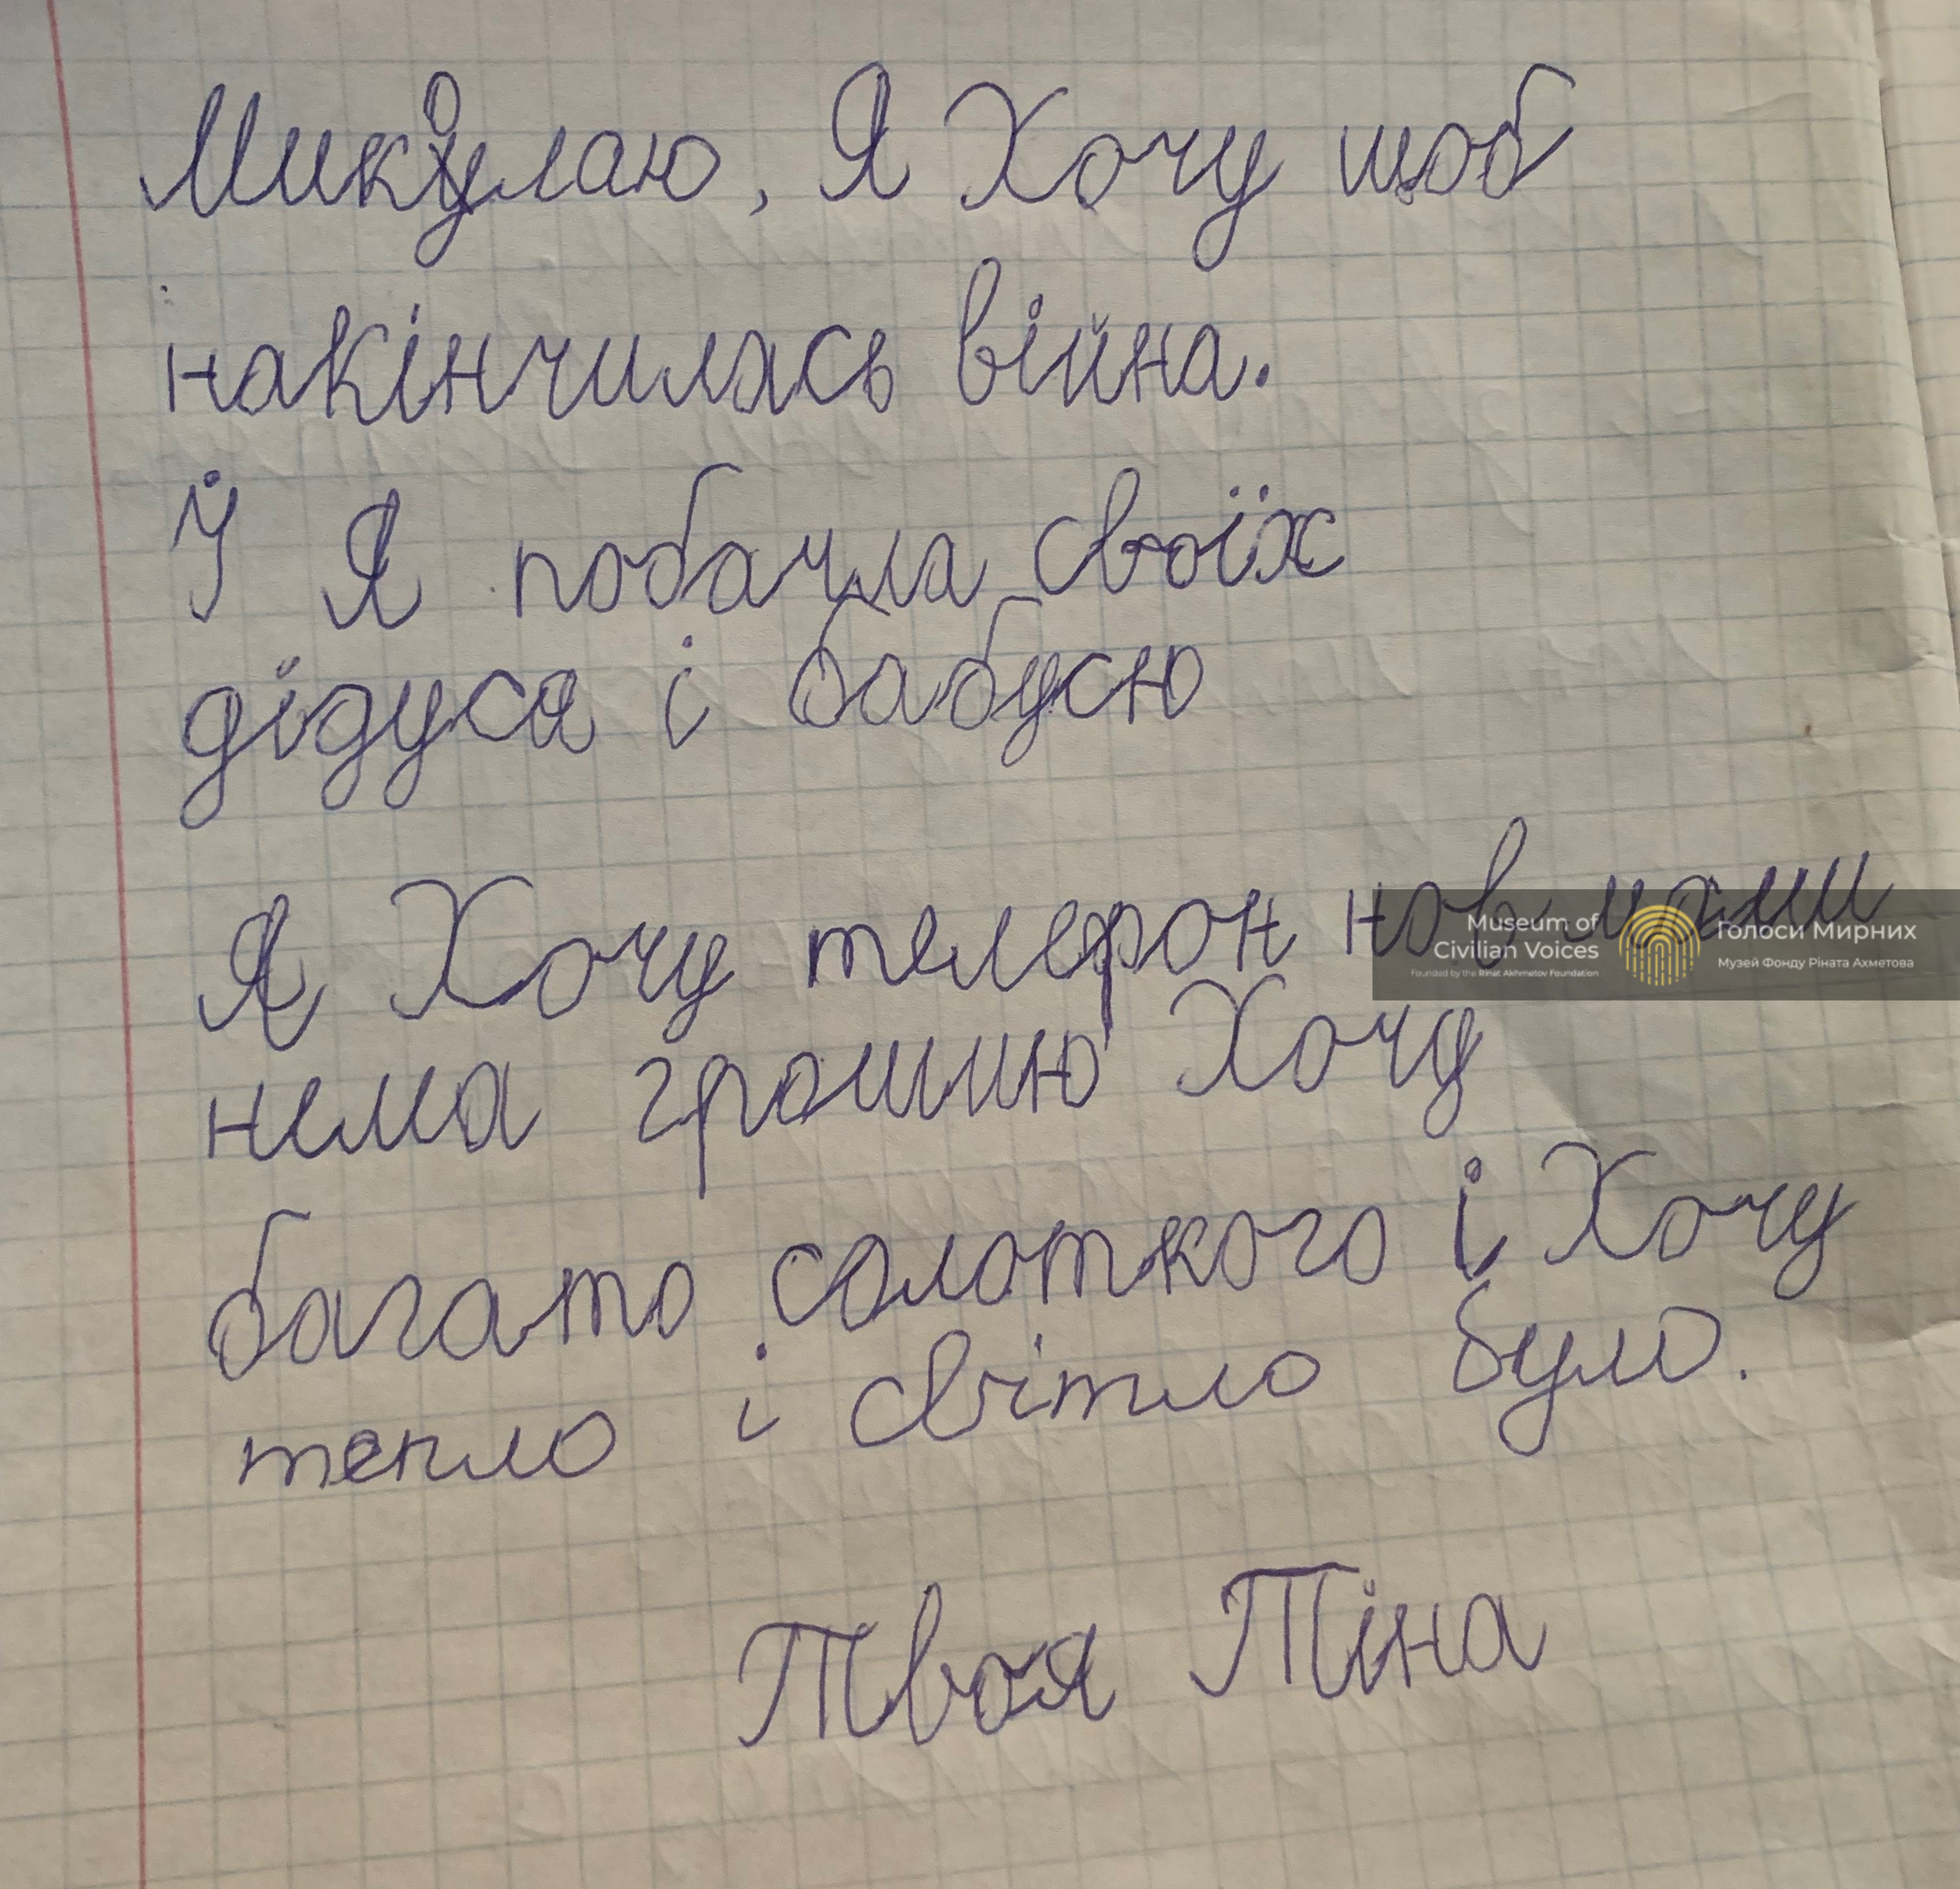 Микулаю, Я Хочу щоб
накінчилась війна.
Й Я побачла своїх
дідуся і бабусю
Я Хочу телефон нов мами
нема грошию Хочу
багато солоткого і Хочу
тепло і світло було.
Твоя Тіна
Museum of
Civilian Voices
Founded by the Rinat Akhmetov Foundation
Голоси Мирних
Музей Фонду Ріната Ахметова